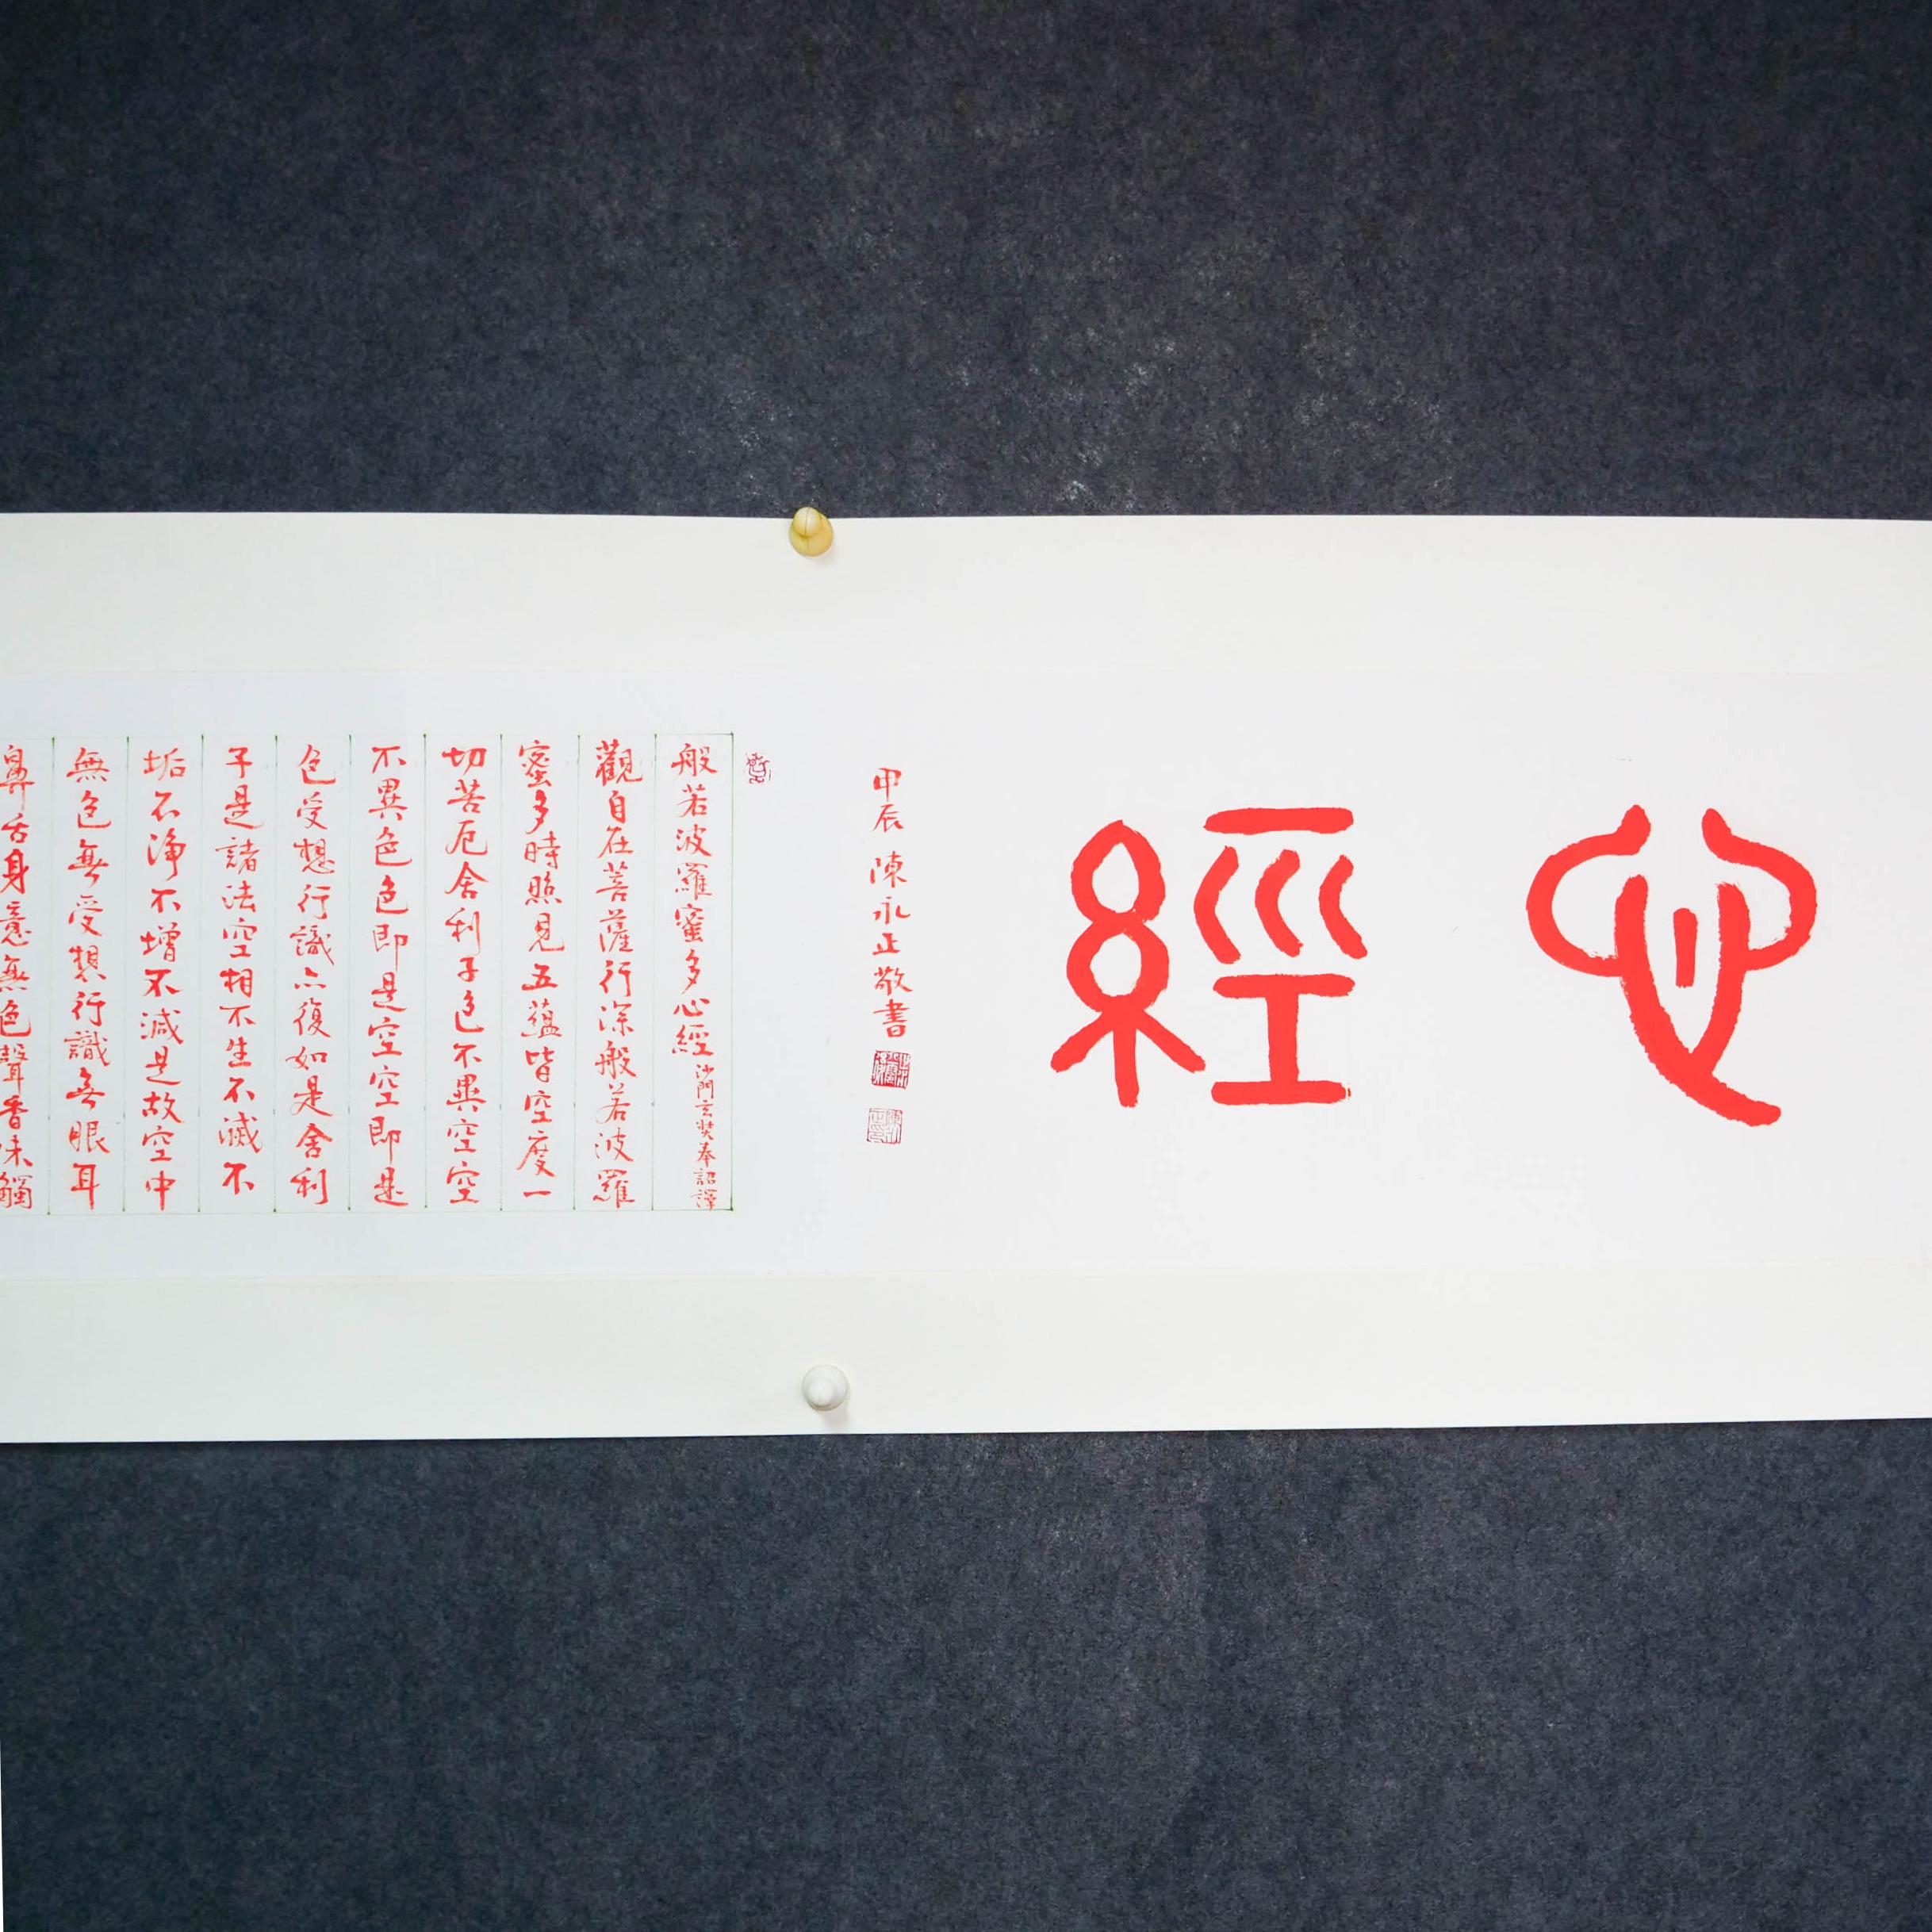 心經
甲辰 陳永正敬書
般若波羅蜜多心經 沙門玄奘奉詔譯
觀自在菩薩行深般若波羅
蜜多時照見五蘊皆空度一
切苦厄舍利子色不異空空
不異色色即是空空即是
色受想行識亦復如是舍利
子是諸法空相不生不滅不
垢不淨不增不減是故空中
無色無受想行識無眼耳
鼻舌身意無色聲香味觸